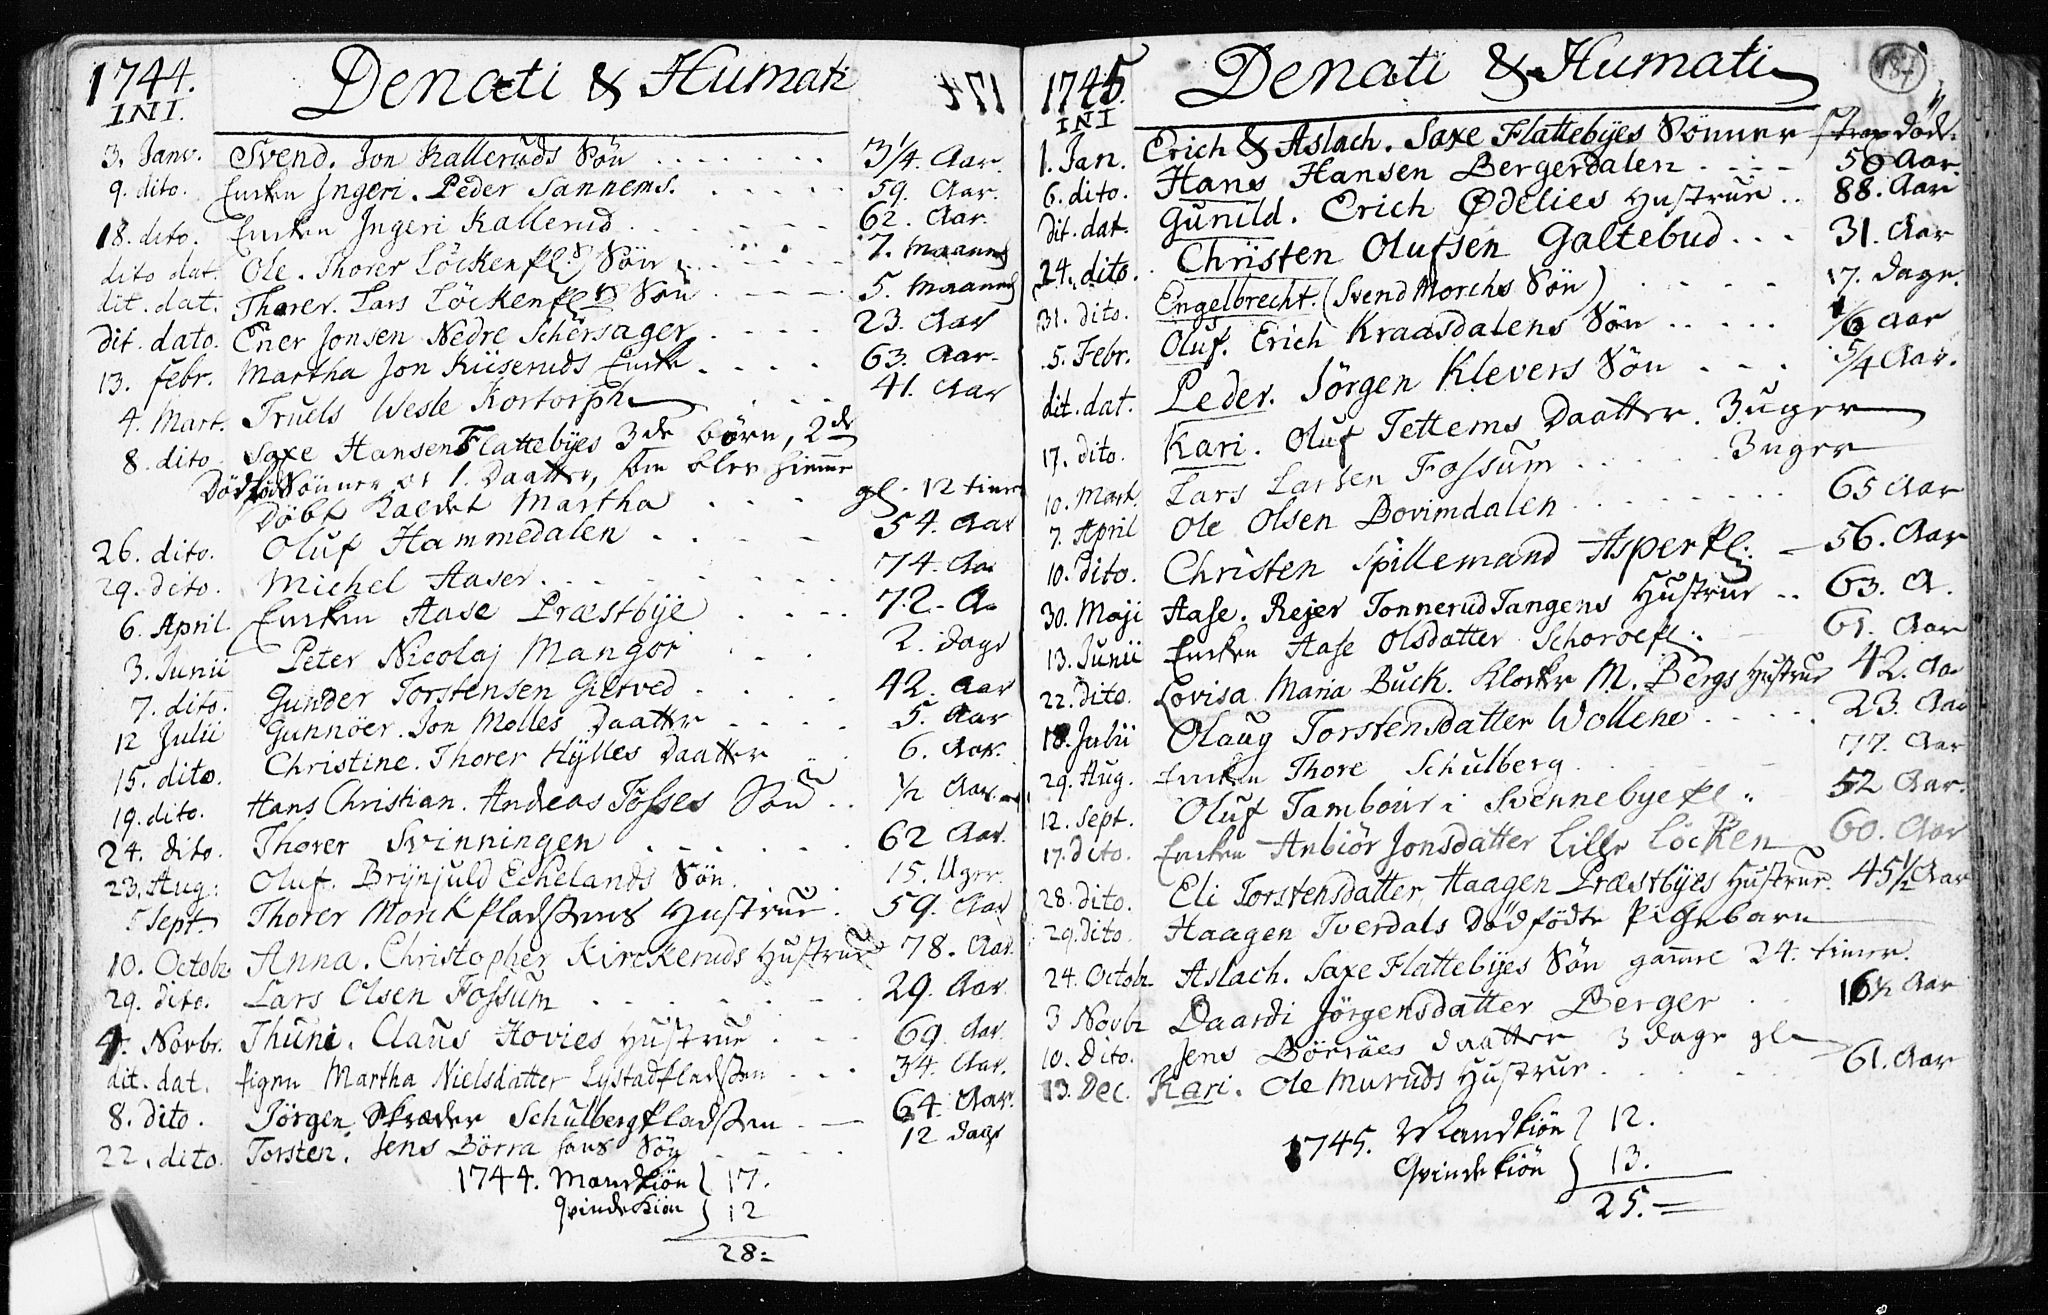 1744. Denati & Humati
INI.
3. Janv. Svend. Jon Kalleruds Sön 3/4. Aar.
9. dito. Enken Ingeri. Peder Sannems. 59. Aar.
18. dito. Enken Ingeri Kallerud 62. Aar.
dito dat. Ole. Thorer Löckenpl. Sön 7. Maaned
dit. dat. Thorer. Lars Löckenpl. Sön 5. Maaned
dit. dato. Ener Jonsen Nedre Schersager 23. Aar
13. febr. Martha Jon Kiiseruds Enke 63. Aar.
4. Mart. Truels Wesle Kortorph 41. Aar
8. dito. Saxe Hansen Flattebÿes 3de börn, 2de
Dödföd Sönner og 1. Daatter, som blev hiemme
Döbt Kaldet Martha gl. 12 timer
26. dito. Oluf Hammedalen 54. Aar
29. dito. Michel Aaser 74. Aa
6. April. Enken Aase Præstbÿe 72. A.
3. Junii Peter Nicolaj Mangor 2. dage
7. dito. Gunder Torstensen Gietved 42. Aar
12 Julii Gunnöer. Jon Molles Daatter 5. Aar
15. dito. Christine. Thorer Hÿlles Daatter 6. Aar.
19. dito. Hans Christian. Andreas Tosses Sön 1/2 Aar
24. dito. Thorer Svinningen 62 Aar.
23. Aug: Oluf. Brÿnjuld Echelands Sön. 15. Uger.
5 Sept. Thorer Monkpladsens Hustrue. 59. Aar
10. Octobr Anna. Christopher Kirckeruds Hustrue 78. Aar.
29. dito. Lars Olsen Fossum 29. Aar.
4. Novbr. Thuni. Claus Hovies Hustrue 69. Aar.
dit. dat. Pigen Martha Nielsdatter Lystadpladsen 34. Aar.
8. dito. Jörgen Skræder Schulbergpladsen 64. Aar.
22. dito. Torsten. Jens Börra Sön 12 dage
1744. Mandkiön } 17.
Qvindekiön } 12
28=
1745. Denati & Humati 184
INI
1. Jan. Erich & Aslach. Saxe Flattebÿes Sönner strax döde.
6. dito. Hans Hansen Bergerdalen 50 Aar.
dit. dat. Gunild. Erich Ødelies Hustrue 88. Aar
24. dito. Christen Olufsen Galtebud 31. Aar
31. dito. Engelbrecht. (Svend Morchs Sön) 17. dage.
5. Febr. Oluf. Erich Kraasdalens Sön 1/6 Aar
dit. dat. Peder. Jörgen Klevers Sön 5/4 Aar.
17. dito. Kari. Oluf Tettems Daatter. 3. uger
10. Mart. Lars Larsen Fossum 3 uger
7. April Ole Olsen Bovimdalen 65 Aar
10. Dito. Christen Spillemand Asperpl. 56. Aar
30. Maji Aase. Rejer Tonnerud Tangens Hustrue 63. A.
13. Junii Enken Aase Olsdatter Schoroepl. 61. Aar
22. Dito. Lovisa Maria Buck. Klocker M. Bergs Hustrue 42. Aa
18. Julii Olaug Torstensdatter Wollene 23. Aar
29. Aug. Enken Thore Schulberg 77. Aar
12. Sept. Oluf Tambour i Svennebyepl. 52 Aar.
17. dito. Enken Anbiör Jonsdatter Lille Löcken 60. Aar
28. dito. Eli Torstensdatter, Haagen Præstbÿes Hustrue. 45 1/2 Aar
29. dito. Haagen Tverdals Dödfödte Pigebarn
24. Octobr Aslach. Saxe Flattebÿes Sön gamle 24. timer.
3 Novbr Daardi Jörgensdatter Berger 16 1/2 Aar
10. Dito. Jens Börraes daatter 3 dage gl.
13. Dec. Kari. Ole Muruds Hustrue 61. Aar
1745. Mandkiön } 12.
Qvindekiön } 13.
25.